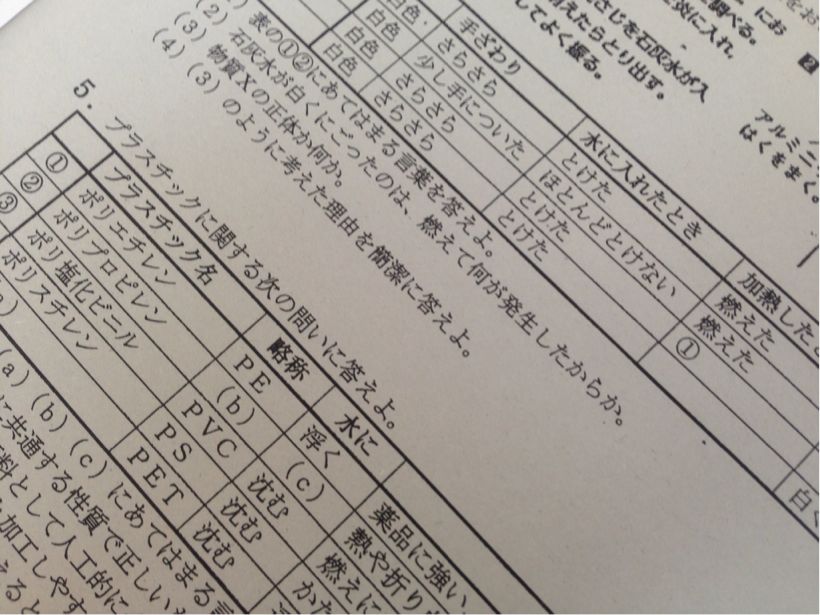 炎に入れ、
さじを石灰水が入
えたらとり出す。
してよく振る。
アルミニ
はくをまく。
手ざわり 水に入れたとき 加熱した
白色・ さらさら とけた 燃えた
白色 少し手についた ほとんどとけない 燃えた
白色 さらさら とけた ①
白色 さらさら とけた
白く
表の①②にあてはまる言葉を答えよ。
(2) 石灰水が白くにごったのは、燃えて何が発生したからか。
(3) 物質Xの正体か何か。
(4) (3)のように考えた理由を簡潔に答えよ。
5. プラスチックに関する次の問いに答えよ。
プラスチック名 略称 水に
① ポリエチレン PE 浮く 薬品に強い
② ポリプロピレン (b) (c) 熱や折り
③ ポリ塩化ビニル PVC 沈む 燃えに
ポリスチレン PS 沈む かた
PET 沈む
(a)(b)(c)にあてはまる言
に共通する性質で正しい
料として人工的に
加工しやす